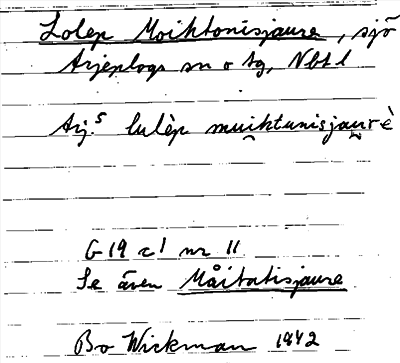 Lolep Moiktonisjaure, sjö
Arjeplogs sn o tg, Nbtl
Arj.s lulèp muiktunisjaurè
G 19 c1 nr 11
Se även Måitatisjaure
Bo Wickman 1942